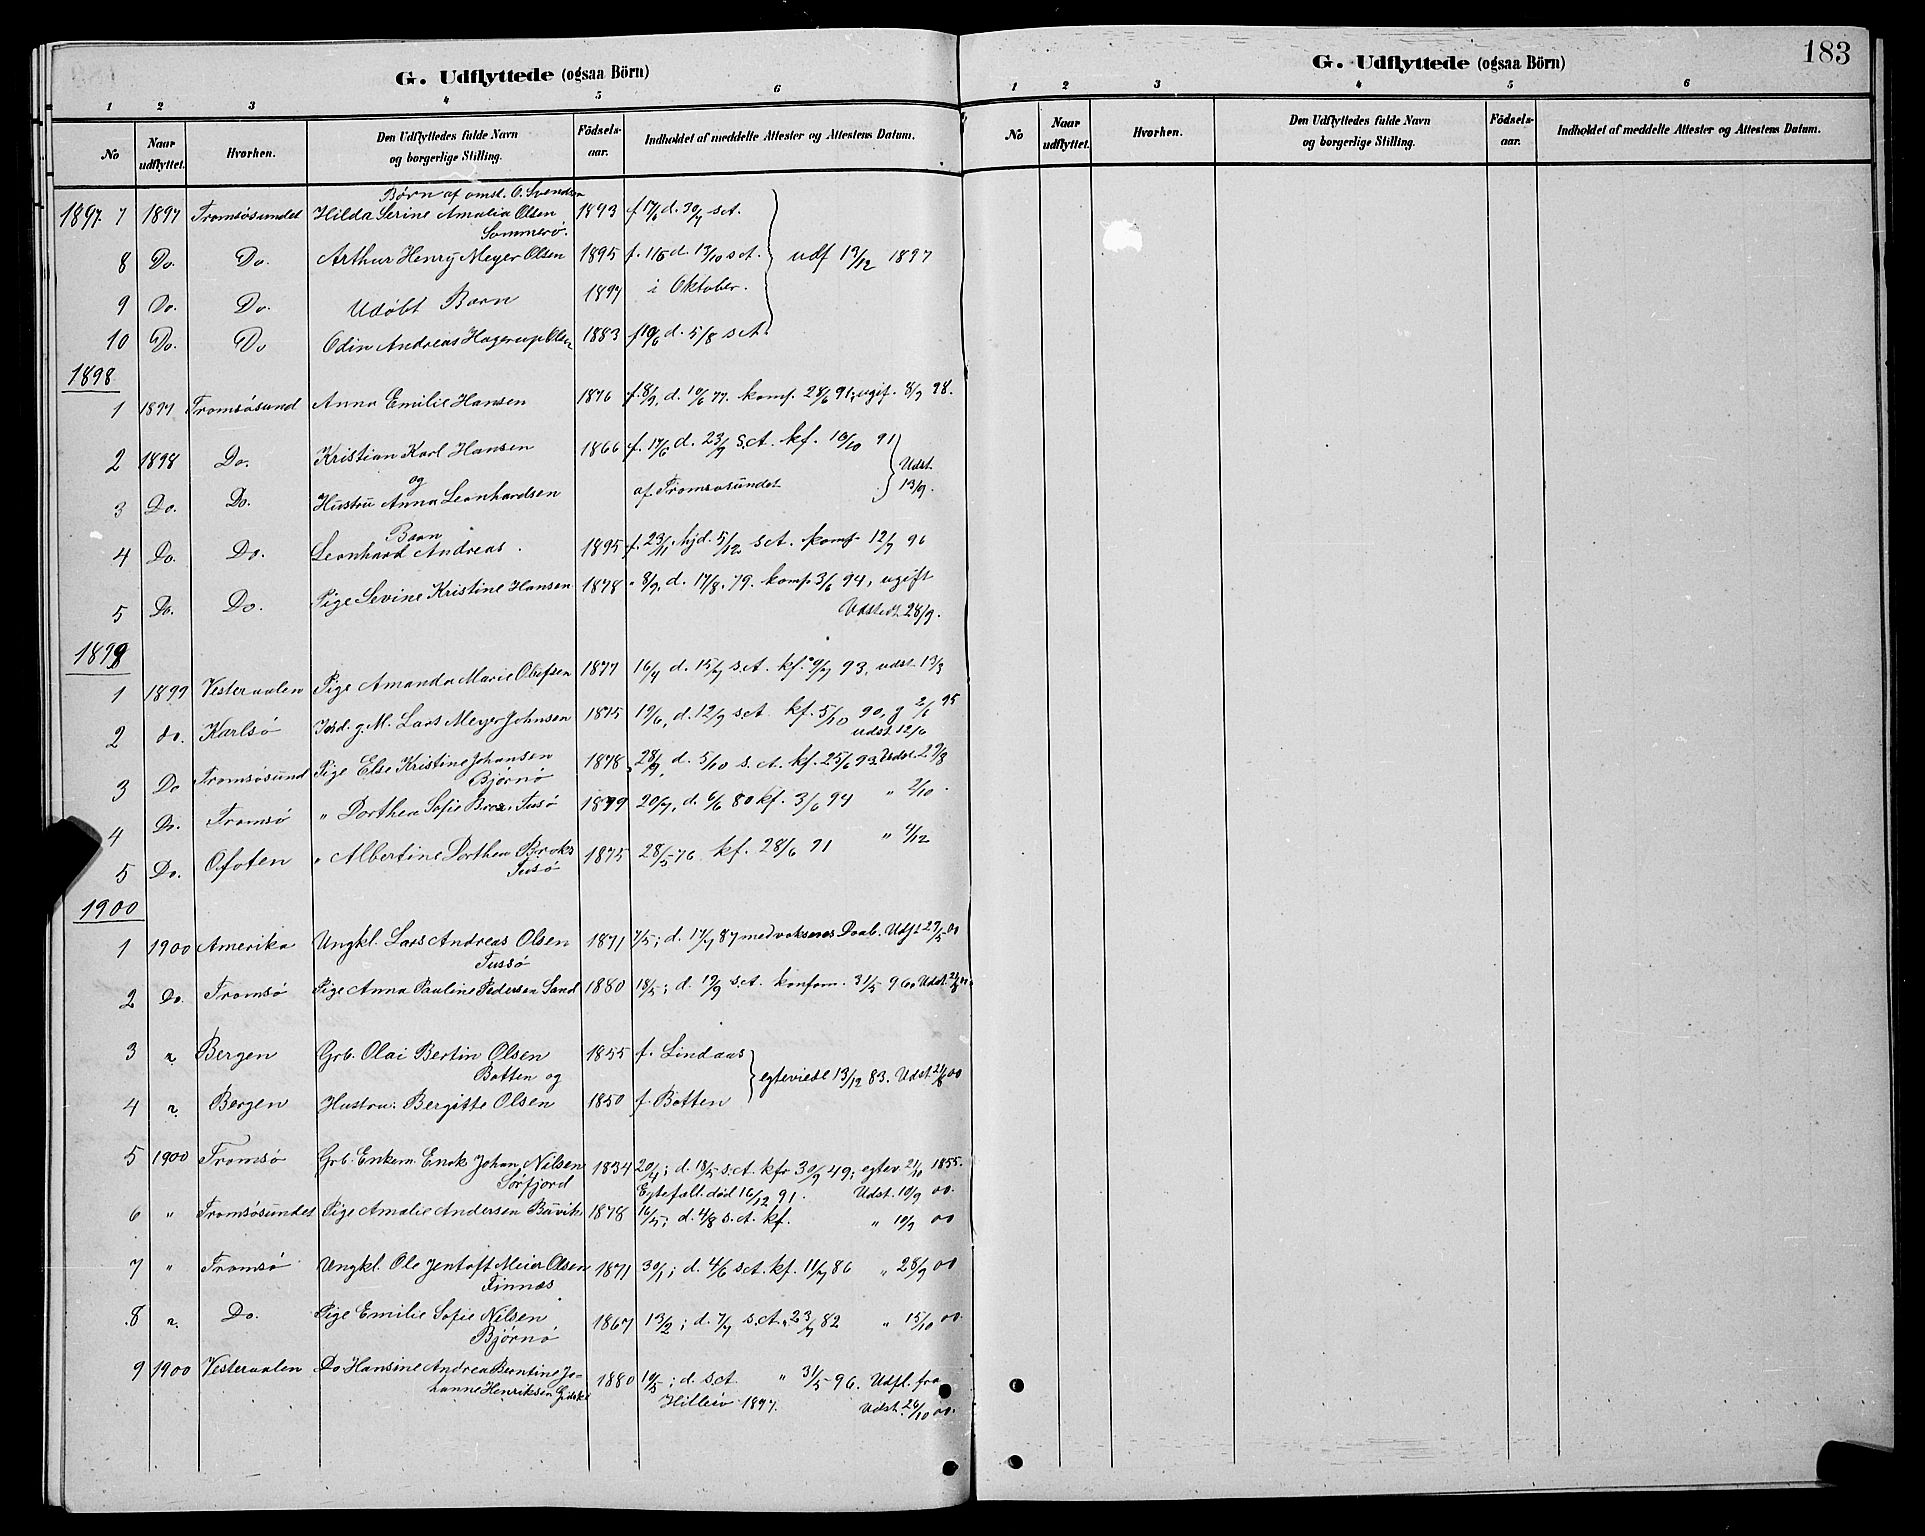 G. Udflyttede (ogsaa Börn)
1 2 3 4 5 6
No Naar udflyttet. Hvorhen. Den Udflyttedes fulde Navn og borgerlige Stilling. Födsels-aar. Indholdet af meddelte Attester og Attestens Datum.
Børn af omst. O. Svendsen
1897. 7 1897 Tromsøsundet Hilda Serine Amalia Olsen 1893 f 17/6 d. 30/7 s.A.
Sommerø.
8 Do. Do. Arthur Henry Meyer Olsen 1895 f. 1/5 d. 13/10 s.A. udf 19/12 1897
9 Do. Do. Udøbt Barn 1897 i Oktober.
10 Do. Do Odin Andreas Hagerup Olsen 1883 f 19/6 d. 5/8 s.A.
1898
1 1897 Tromsøsund Anna Emilie Hansen 1876 f. 8/9, d. 10/6 77. komf. 28/6 91, ugif. 8/9 98.
2 1898 Do. Kristian Karl Hansen 1866 f. 17/6 d. 23/9 s.A. kf. 18/10 91
og Udst.
3 Do. Do. Hustru Anna Leonhardsen af Tromsøsundet 13/9.
Barn
4 Do. Do. Leonhard Andreas. 1895 f. 23/11 hjd. 5/12 s.A. komf 12/7 96
5 Do. Do. Pige Sevine Kristine Hansen 1878 " 8/9, d. 17/8. 79. komf 3/6 94, ugift
Udstedt 28/9.
1899
1 1899 Vesteraalen Pige Amanda Marie Olufsen 1877 16/4 d. 15/7 s.A. kf. 9/7 93, udst 13/3
2 do. Karlsø g.M. Lars Meyer Johnsen 1875 19/6, d. 12/9 s.A. kf. 5/10 90, g 2/6 95
udst. 12/6
3 Do Tromsøsund Pige Else Kristine Johansen 1878 28/9, d. 5/10 s.A. kf. 25/6 93. Udst. 29/8
Bjørnø
4 Do. Tromsø " Dorthea Sofie Tusø 1879 20/7, d. 6/6 80 kf. 3/6 94 " 2/10.
5 Do. Ofoten " Albertine Dorthea 1875 28/5 76 kf. 28/6 91 " 4/12
Tusø
1900
1 1900 Amerika Ungkl. Lars Andreas Olsen 1871 7/5; d. 17/7 87 med voksenes Daab. Udst 29/5 00
Tussø
2 Do. Tromsø Pige Anna Pauline Pedersen Sand 1880 18/5; d. 19/9 s.A. konfom. 31/5 96. Udst.
3 " Bergen Grb. Olai Bertin Olsen 1855 f. Lindaas
Botten og egteviede 13/12 83. Udst. 21/8 00
4 " Bergen Hustru: Bergitte Olsen 1850 f. Botten
5 1900 Tromsø Grb. Enkem. Enok Johan Nilsen 1834 20/4; d. 18/5 s.A. kfr 30/9 49; egtev. 21/10 1855.
Sørfjord Egtefall. død 16/12 91. Udst. 10/9 00.
6 " Tromsøsundet Pige Amalie Andersen Buvik 1878 16/5; d. 4/8 s.A. kf. " 10/9 00
7 " Tromsø Ungkl. Ole Jentoft Meier Olsen 1871 30/1; d. 4/6 s.A. kf. 11/7 86 " 28/9 00
Finnæs
8 " Do. Pige Emilie Sofie Nilsen 1867 13/2; d. 7/7 s.A. " 23/7 82 " 15/10 00.
Bjørnø
9 1900 Vesteraalen Do Hansine Andrea Berntine Jo- 1880 19/5; d. s.A. " 31/5 96. Udfl. fra
hanne Henriksen Hillesø 1897. Udst. 26/10 00.
183
G. Udflyttede (ogsaa Börn)
1 2 3 4 5 6
No Naar udflyttet. Hvorhen. Den Udflyttedes fulde Navn og borgerlige Stilling. Födsels-aar. Indholdet af meddelte Attester og Attestens Datum.